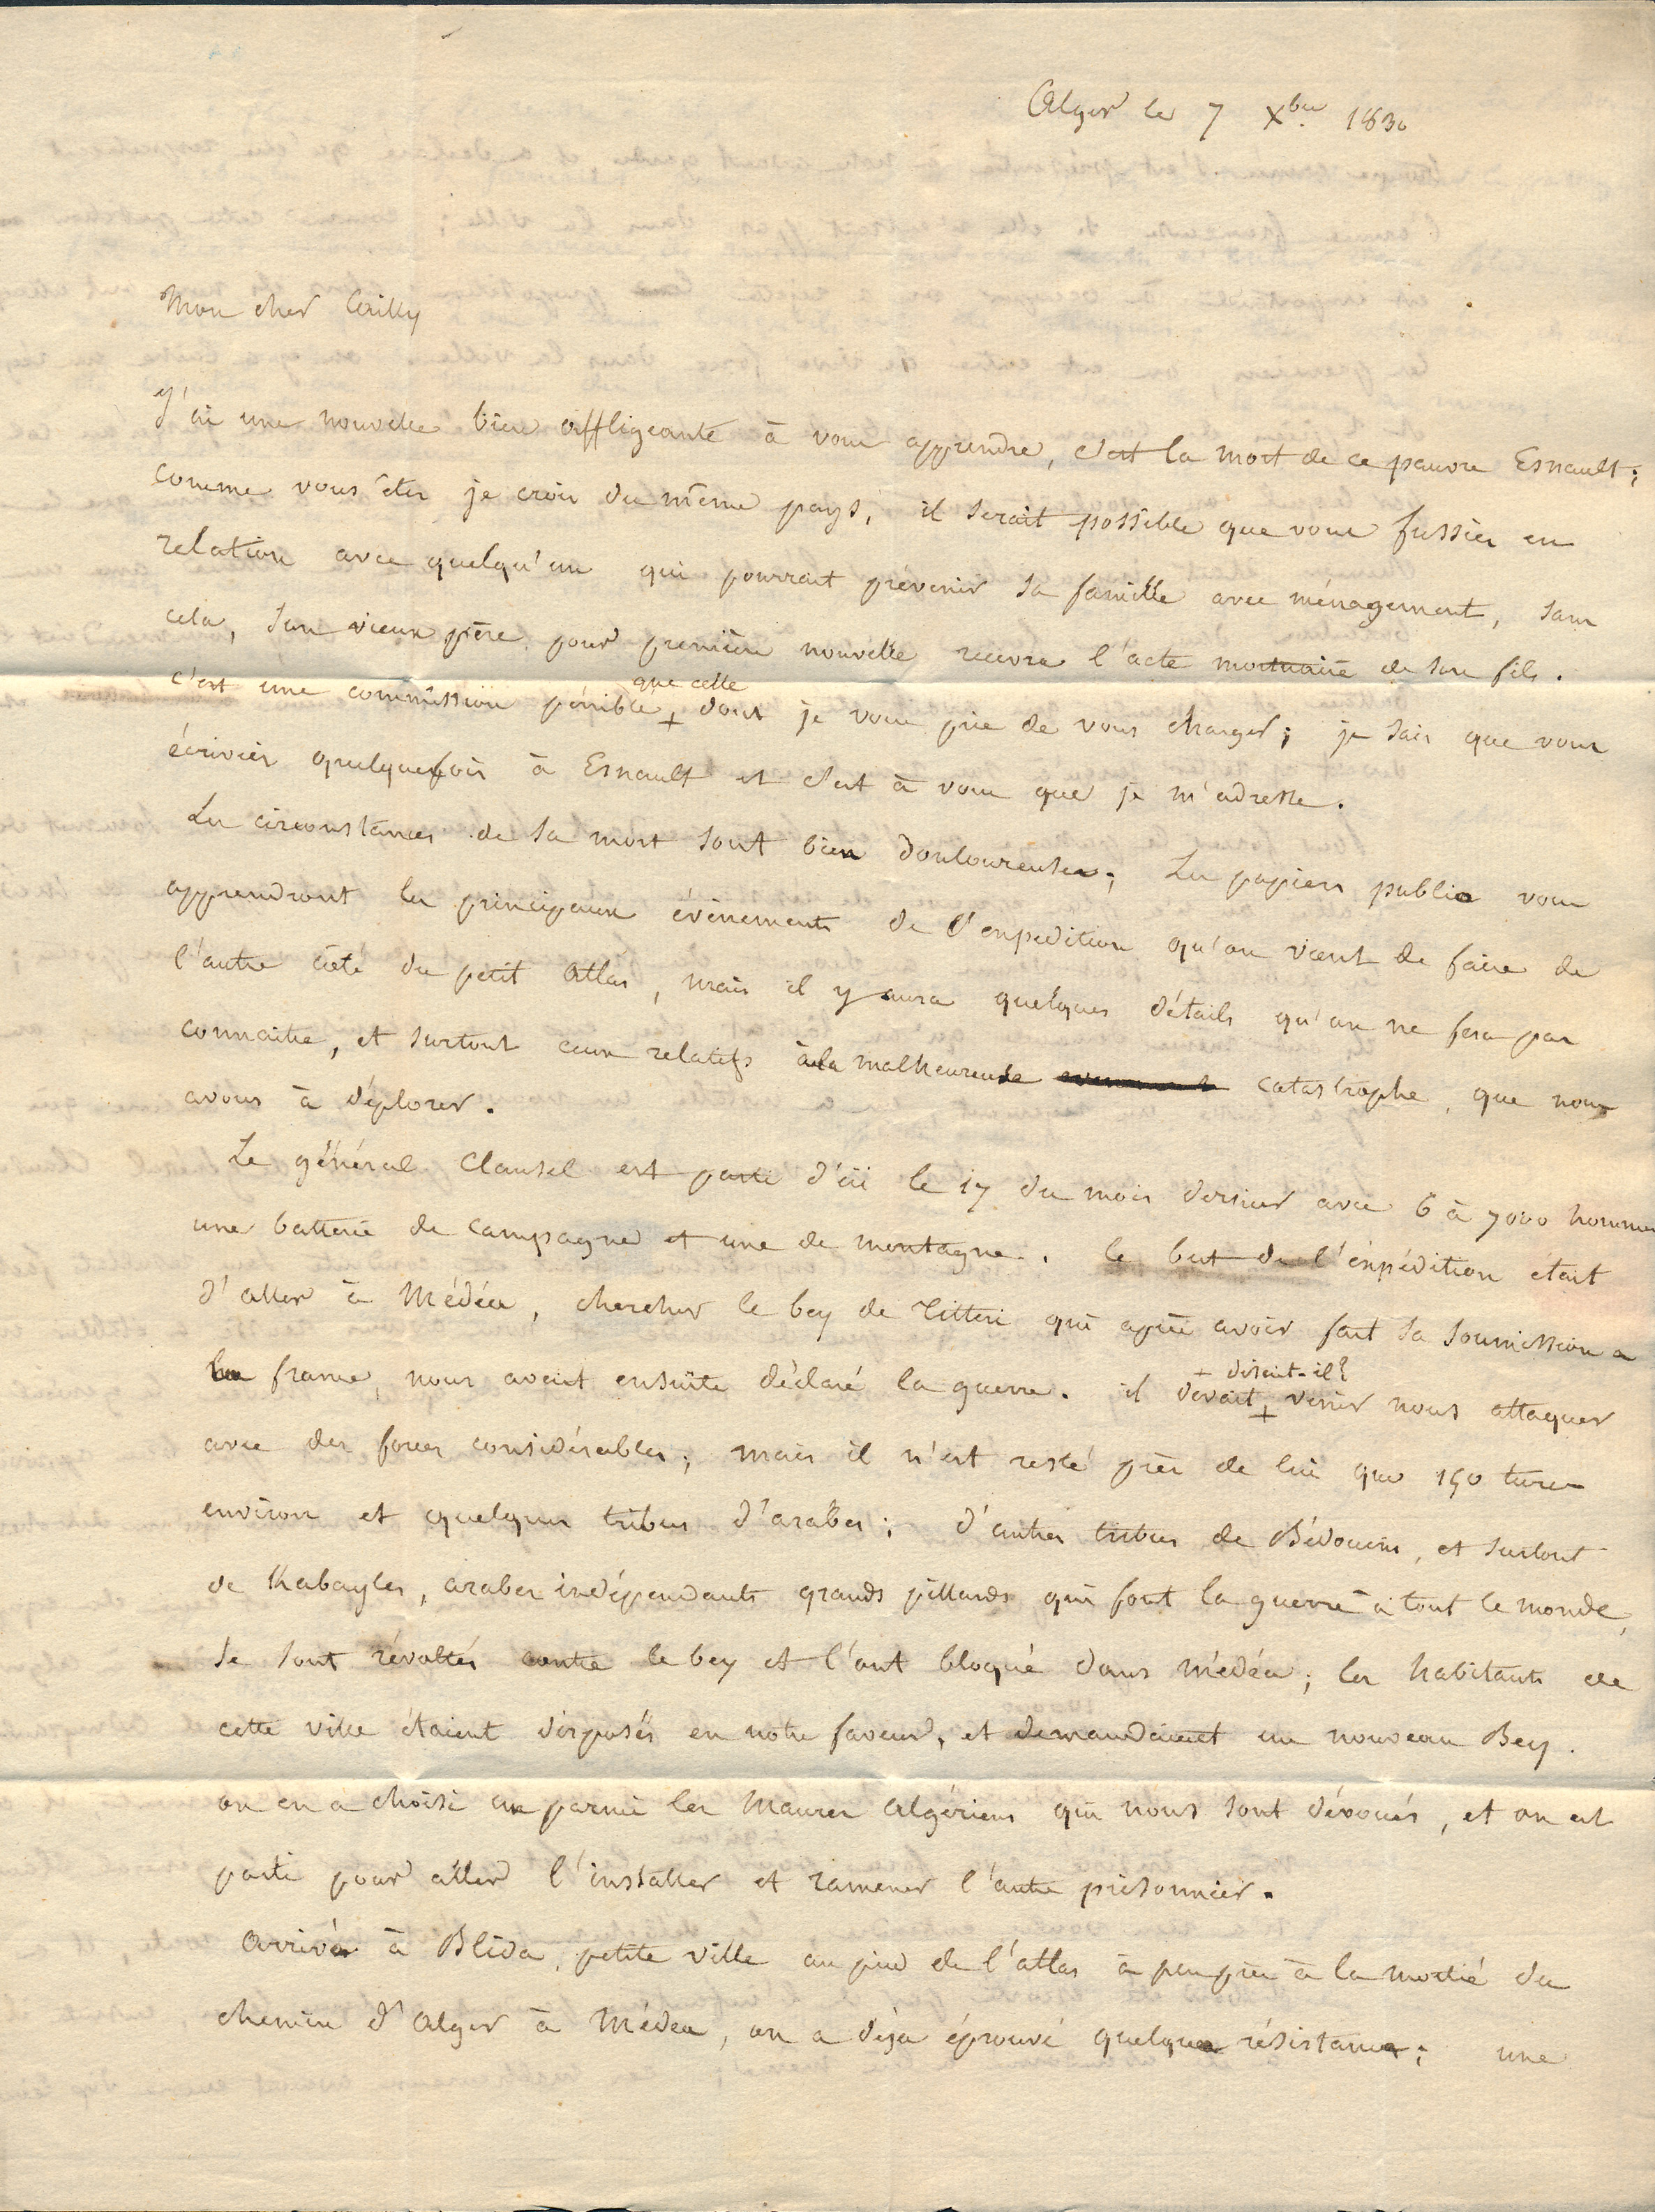 Alger le 7 Xbre 1830
Mon cher Cailly
J'ai une nouvelle bien affligeante à vous apprendre, c'est la mort de ce pauvre Esnault ;
comme vous êtes je crois du même pays, il serait possible que vous fussiez en
relation avec quelqu'un qui pourrait prévenir sa famille avec ménagement, sans
cela, son vieux père pour première nouvelle recevra l'acte mortuaire de son fils.
que celle
c'est une commission pénible + dont je vous prie de vous charger ; je sais que vous
écriviez quelquefois à Esnault et c'est à vous que je m'adresse.
Les circonstances de sa mort sont bien douloureuses ; Les papiers publics vous
apprendront les principaux événements de l'expédition qu'on vient de faire de
l'autre côté du petit Atlas, mais il y aura quelques détails qu'on ne fera pas
connaitre, et surtout ceux relatifs à la malheureuse catastrophe, que nous
avons à déplorer.
Le général Clausel est parti d'ici le 17 du mois dernier avec 6 à 7000 hommes
une batterie de campagne et une de montagne. le but de l'expédition était
d'aller à Médéa, chercher le bey de Titteri qui après avoir fait sa soumission a
la france, nous avait ensuite déclaré la guerre. il devait + venir nous attaquer
+ disait-il
avec des forces considérables ; mais il n'est resté près de lui que 150 turcs
environ et quelques tribus d'arabes ; d'autres tribus de Bédouins, et surtout
de Kabayles, arabes indépendants grands pillards qui font la guerre à tout le monde,
se sont révoltés contre le bey et l'ont bloqué dans Médéa ; les habitants de
cette ville étaient disposés en notre faveur, et demandaient un nouveau Bey.
on en a choisi un parmi les Maures algériens qui nous sont dévoués, et on est
parti pour aller l'installer et ramener l'autre prisonnier.
Arrivés à Blida, petite ville au pied de l'atlas à peu près à la moitié du
chemin d'Alger à Médéa, on a déjà éprouvé quelque résistance ; une